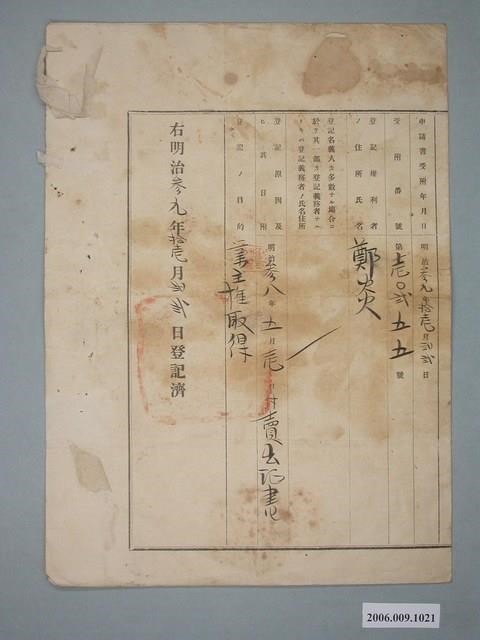 申請書受附年月日 明治参九年拾壱月弐弐日
受附番號 第壱〇弐五五號
登記權利者ノ住所氏名 鄭炎
登記名義人カ多數ナル場合ニ
於テ其一部カ登記義務者ナル
トキハ登記義務者ノ氏名住所
登記原因及ヒ其日附 明治参八年五月壱日付賣出証書
登記ノ目的 業主權取得
右明治参九年拾壱月弐弐日登記濟
2006.009.1021